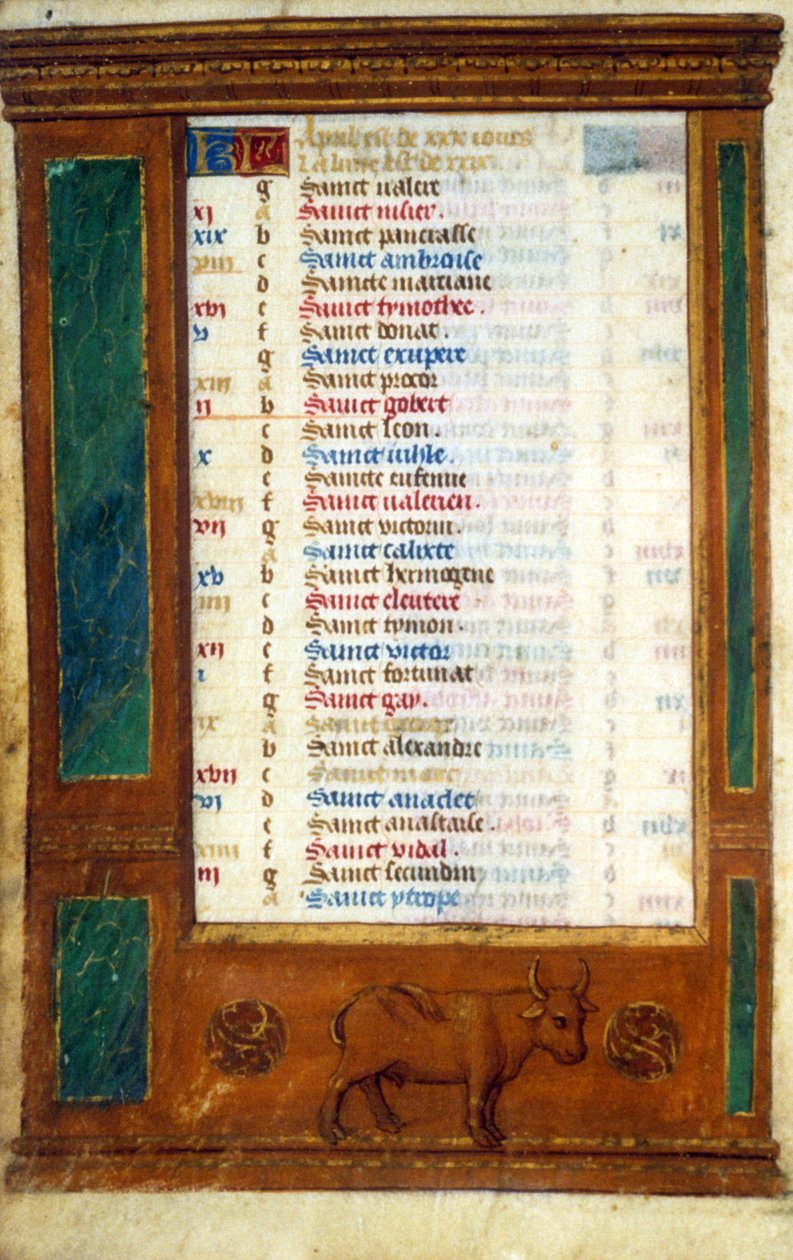 KL Apuril est de xxx iours
La lune est de xxix.
g Sainct ualere
xj a Sainct nisier.
xix b Sainct pancrasse
viii c Sainct ambroise
d Saincte marciane
xvj e Sainct tymothee.
v f Sainct donat.
g Sainct exupere
xiij a Sainct procor
ij b Sainct gobert
c Sainct leon.
x d Sainct iulle.
e Saincte eufemie
xviij f Sainct ualerien.
vij g Sainct victorin.
a Sainct calixte
xv b Sainct hermogene
iiij c Sainct eleutere
d Sainct tymon.
xij e Sainct victor
i f Sainct fortunat
g Sainct gay.
ix a Sainct
b Sainct alexandre
xvij c Sainct marc
vj d Sainct anaclet
e Sainct anastaise.
xiiij f Sainct vidal.
iij g Sainct secundin
a Sainct ytrope